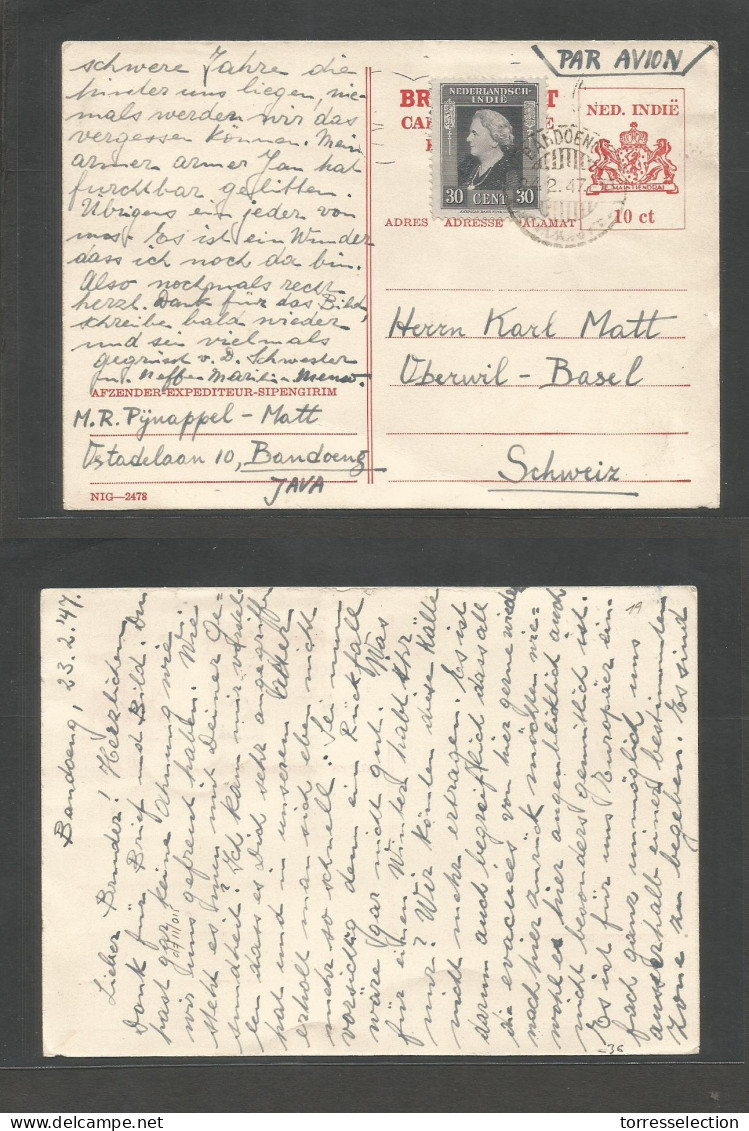 schwere Jahre die
hinter uns liegen, nie-
mals werden wir das
vergessen können. Mein
armer armer Jan hat
furchtbar gelitten.
Übrigens ein jeder von
uns. Es ist ein Wunder
dass ich noch da bin.
Also nochmals recht
herzl. Dank für das Bild,
schreibe bald wieder
und sei vielmals
gegrüsst v. D. Schwester
u. Neffen
AFZENDER-EXPEDITEUR-SIPENGIRIM
M.R. Pijnappel - Matt
Ostadelaan 10, Bandoeng
JAVA
NIG—2478
PAR AVION
NEDERLANDSCH-
INDIË
30 CENT 30
BANDOENG
2.47
NED. INDIË
JE MAINTIENDRAI
10 ct
ADRES ADRESSE ALAMAT
Herrn Karl Matt
Oberwil - Basel
Schweiz
Bandoeng, 23.2.'47.
Lieber Bruder! Herzlichen
Dank für Brief und Bild. Du
hast gar keine Ahnung wie
wir uns gefreut haben. Wie
steht es nun mit Deiner Ge-
sundheit? Ich kann mir vorstel-
len dass es Dich sehr angegriffen
hat und in unserem Alter
erholt man sich eben nicht
mehr so schnell. Sei nur
vorsichtig denn ein Rückfall
wäre gar nicht gut. Was
für einen Winter habt Ihr
nur? Wir könnten diese Kälte
nicht mehr ertragen. Es ist
darum auch begreiflich dass all
die evacuées von hier gerne wieder
nach hier zurück möchten wie-
wohl es hier augenblicklich auch
nicht besonders gemütlich ist.
Es ist für uns Europäer ein-
fach ganz unmöglich uns
ausserhalb einer bestimmten
Zone zu begeben. Es sind
19
torresselection